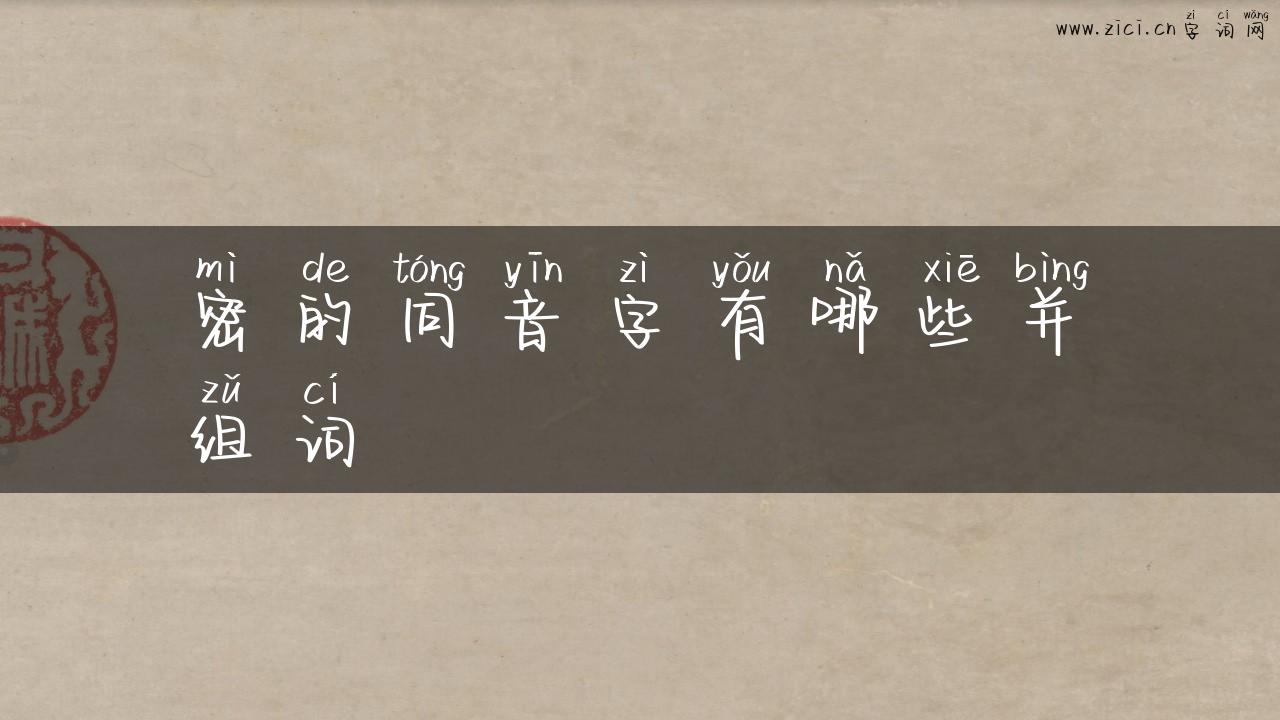 zì cí wǎng
www.zici.cn 字词网
mì de tóng yīn zì yǒu nǎ xiē bìng
密的同音字有哪些并
zǔ cí
组词